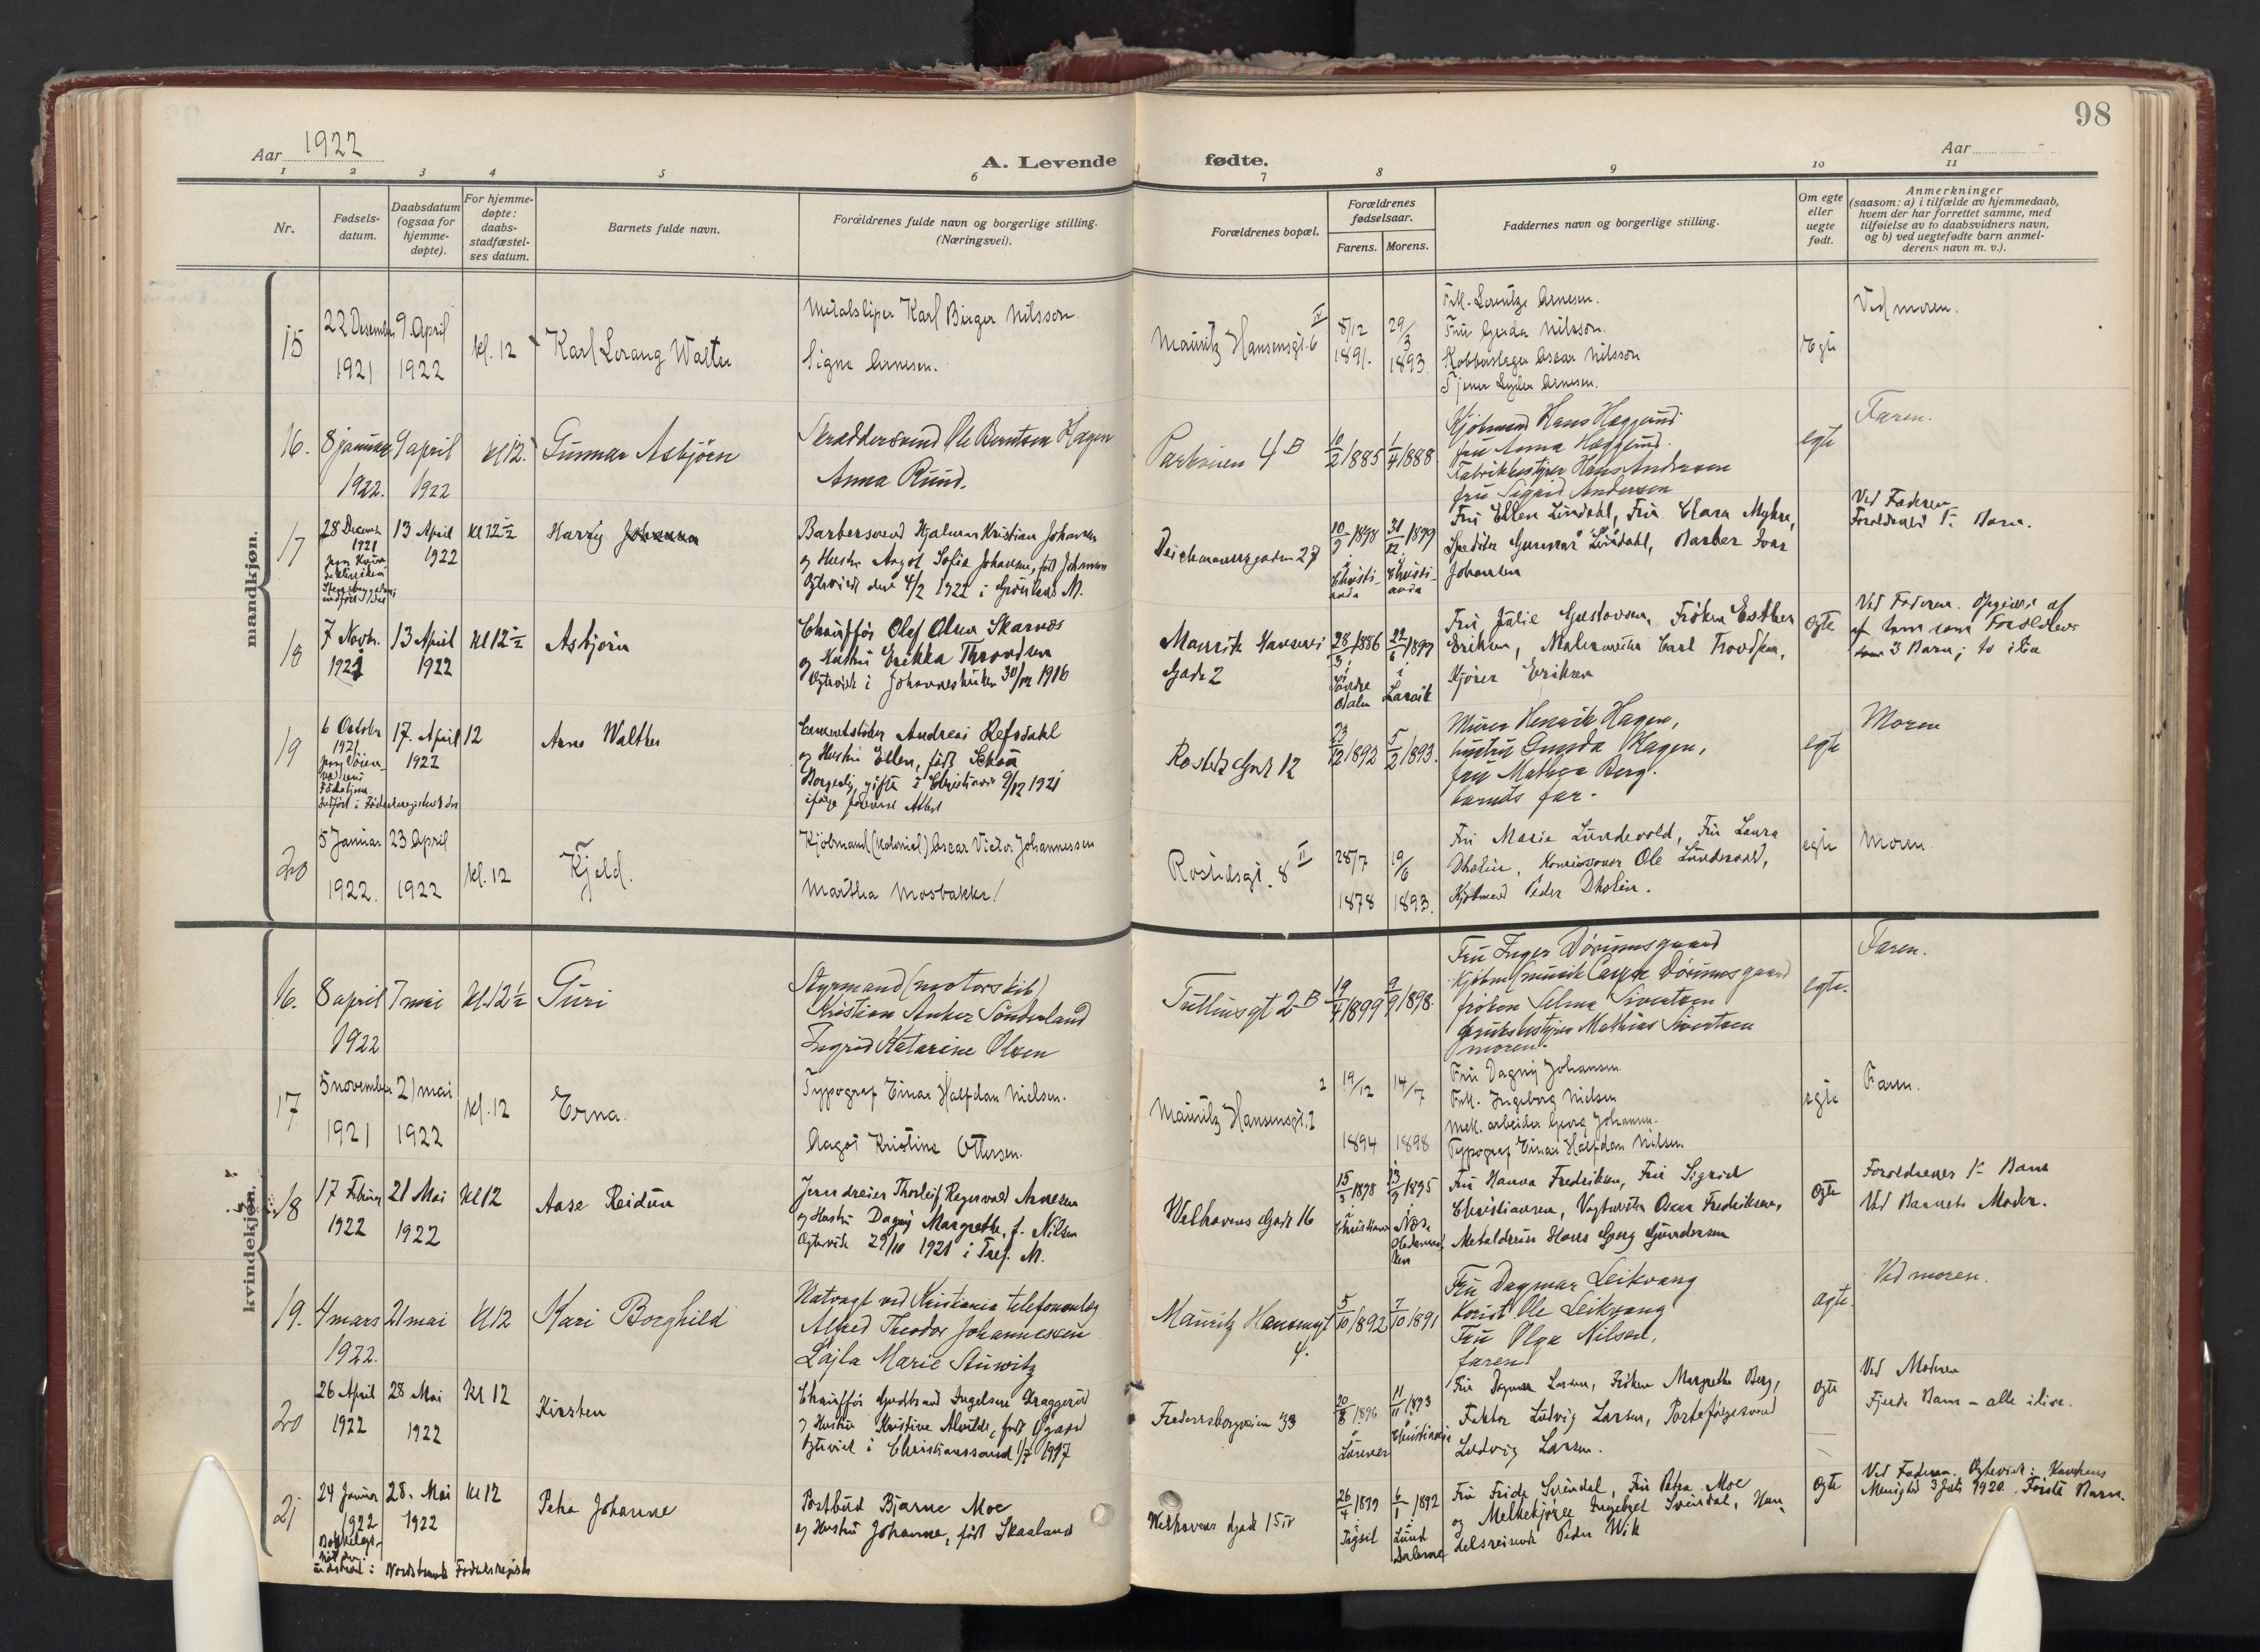 98
Aar 1922
Aar
A. Levende fødte.
1 2 3 4 5 6 7 8 9 10 11
Nr.
Fødsels-
datum.
Daabsdatum
(ogsaa for
hjemme-
døpte).
For hjemme-
døpte:
daabs-
stadfæstel-
ses datum.
Barnets fulde navn.
Forældrenes fulde navn og borgerlige stilling.
(Næringsvei).
Forældrenes bopæl.
Forældrenes
fødselsaar.
Farens. Morens.
Faddernes navn og borgerlige stilling.
Om egte
eller
uegte
født.
Anmerkninger
(saasom: a) i tilfælde av hjemmedaab,
hvem der har forrettet samme, med
tilføielse av to daabsvidners navn,
og b) ved uegtefødte barn anmel-
derens navn m. v.).
mandkjøn.
15
22 Desember
1921
9. April
1922
kl. 12
Karl Lorang Walter
Metalsliper Karl Birger Nilsson.
Signe Arnesen.
Mauritz Hansensgt. 6 IV
8/12
1891.
29/3
1893.
Frk. Lorentze Arnesen.
Fru Gerda Nilsson.
Kobberslager Oscar Nilsson
Tjener Lyder Arnesen.
Egte
Ved moren.
16.
8 januar
1922.
9 april
1922
kl 12.
Gunnar Asbjörn
Skræddersvend Ole Berntsen Hagen
Anna Ruud.
Parkveien 4 B
10/2 1885
1/4 1888
Kjöbmand Hans Hæggerud
fru Anna Hæggerud.
Fabrikbestyrer Hans Andersen
fru Sigrid Andersen
egte
Faren.
17
28 Decemb
1921
13 April
1922
Kl 12 1/2
Harry Johannes
Barbersvend Hjalmar Kristian Johansen
og Hustru Aagot Sofie Johansen, född Johansen
Egteviet den 4/2 1922 i Grönland M.
Deichmannsgaden 27
10/9 1898
i
Christi-
ania
31/12 1899
i
Christi-
ania
Fru Ellen Lindahl, Fru Clara Myhre,
Speditör Gunnar Lindahl, Barber Ivar
Johansen
Ved Faderen
Forældrenes 1ste Barn.
18
7 Novbr.
1921
13 April
1922
Kl 12 1/2
Asbjörn
Chaufför Olaf Olsen Skarnæs
og Hustru Erikka Throndsen
Egteviet i Johanneskirken 30/12 1916
Mauritz Hansens
Gade 2
28/3 1886
i
Söndre
Odalen
22/6 1897
i
Larvik
Fru Julie Gustavsen, Fröken Esther
Eriksen, Malermester Carl Trondsen,
Kjörer Eriksen
Egte
Ved Faderen. Opgives af
af ham som Forældrenes
3 Barn; to ilive
19
6 October
1921
17. April
1922
12
Arne Walther
Cementstöber Andreas Refsdahl
og Hustru Ellen, född Schou
Borgerlig gifte i Christiania 9/12 1921
ifölge forevist Attest
Rosteds Gade 12
23/12 1892
5/2 1893.
Murer Henrik Hagen,
hustru Gunda Hagen,
fru Mathea Berg.
barnets far.
egte
Moren
20
5 Januar
1922.
23 April
1922
kl. 12
Kjeld.
Kjöbmand (kolonial) Oscar Victor Johannessen
Martha Mosbakke!
Rostedsgt. 8 II
28/7
1878
19/6
1893.
Fru Marie Lundevold, Fru Laura
Dholin, Kontorsovar Ole Lundevold,
Kjöbmand Peder Dholin.
egte
Moren.
kvindekjøn.
16.
8 april
1922
7 mai
kl. 12 1/2
Turi
Styrmand (motorskib)
Kristian Anker Sönderland
Ingrid Katarine Olsen
Tullinsgt 2 B
19/4 1899
9/9 1898.
Fru Inger Dörumsgaard
Kjöbm (musik Casper Dörumsgaard
fröken Selma Sivertsen
Bruksbestyrer Mathias Sivertsen
moren.
egte.
Faren.
17
5 november
1921
21 mai
1922
kl. 12
Erna.
Typograf Einar Halfdan Nielsen.
Aagot Kristine Ottersen.
Mauritz Hansensgt. 2
19/12
1894
14/7
1898
Fru Dagny Johansen
Frk. Ingeborg Nielsen
Mek. arbeider Georg Johansen.
Typograf Einar Halfdan Nielsen.
egte
Faren.
18
17 Februar
1922
21 Mai
1922
Kl 12
Aase Reidun
Jerndreier Thorleif Ragnvald Arnesen
og Hustru Dagny Margrethe, f. Nilsen
Egteviet 29/10 1921 i Tref. M.
Welhavens Gade 16
15/3 1898
i
Christiania
13/9 1895
i
Næs
Hedemar-
ken
Fru Hanna Fredriksen, Fru Sigrid
Christiansen, Vagtmester Oscar Fredriksen,
Metaldreier Hans Georg Gundersen
Egte
Forældrenes 1ste Barn
Ved Barnets Moder.
19.
4 mars
1922.
21 mai
kl 12
Kari Borghild
Natvagt ved Kristiania telefonanlæg
Alfred Theodor Johannessen
Lajla Marie Stuwitz
Mauritz Hansensgt
4.
5/10 1892
7/10 1891
Fru Dagmar Leikvang
Korist Ole Leikvang
Fru Olga Nilsen,
faren
egte.
Ved moren.
20
26 April
1922
28 Mai
1922
Kl 12
Kirsten
Chaufför Gudbrand Ingelsen Kraggerud
og Hustru Kristine Alvilde, född Ygard
Egteviet i Christianssand 1/7 1917
Frederiksborgveien 33
20/8 1896
i
11/11 1893
i
Christiania
Fru Dagmar Larsen, Fröken Margrethe Berg,
Faktor Ludvig Larsen, Porteföljesvend
Ludvig Larsen.
Egte
Ved Moderen
Fjerde Barn - alle ilive.
21
24 Januar
1922
28. Mai
1922
Kl 12
Petra Johanne
Postbud Bjarne Moe
og Hustru Johanne, född Skaaland
Welhavens Gade 15 IV
26/4 1899
i
Trysil
6/1 1892
i
Lund
Dalerne
Fru Frida Svendal, Fru Petra Moe
og Melkekjörer Ingebret Svendal, Han-
delsreisende Peder Wik
Egte
Ved Faderen. Egteviet i Kampens
Menighed 3 Juli 1920. Förste Barn.
indstred i Nordstrands Fødselsregister